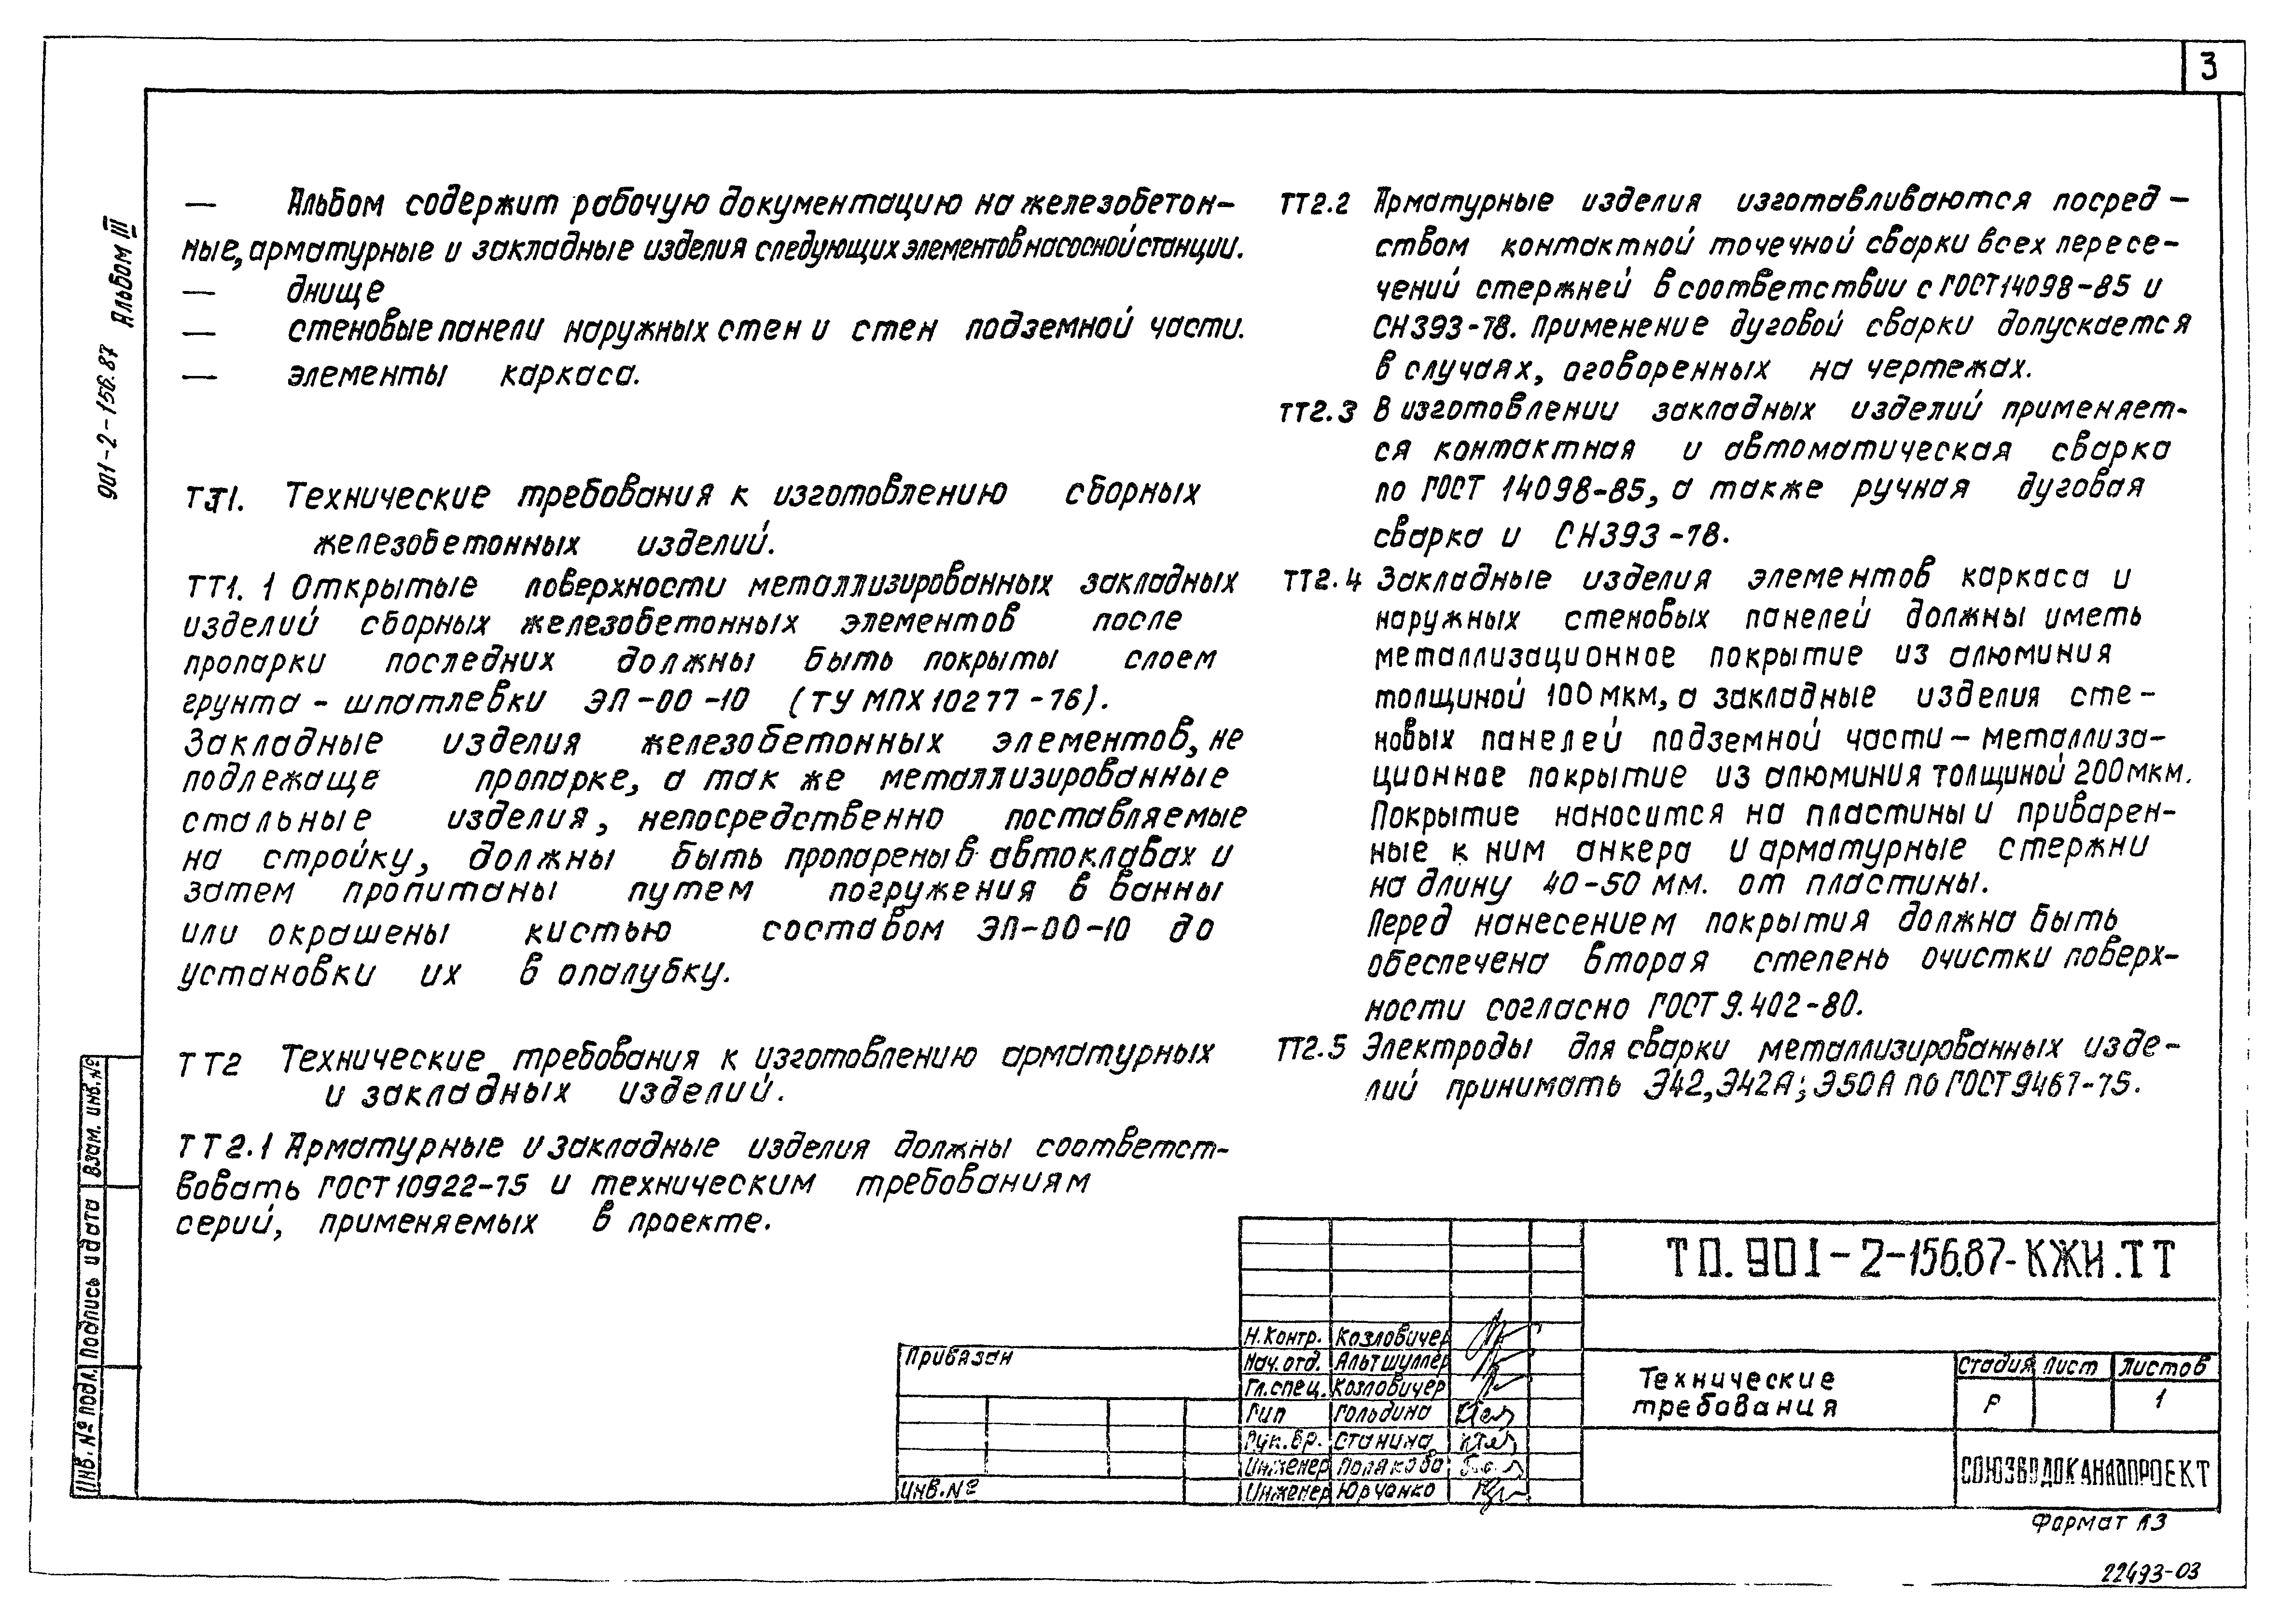 3
901-2-156.87 Альбом III
— Альбом содержит рабочую документацию на железобетон-
ные, арматурные и закладные изделия следующих элементов насосной станции.
— днище
— стеновые панели наружных стен и стен подземной части.
— элементы каркаса.
ТТ1. Технические требования к изготовлению сборных
железобетонных изделий.
ТТ1.1 Открытые поверхности металлизированных закладных
изделий сборных железобетонных элементов после
пропарки последних должны быть покрыты слоем
грунта - шпатлевки ЭП-00-10 (ТУ МПХ 10277-76).
Закладные изделия железобетонных элементов, не
подлежаще пропарке, а так же металлизированные
стальные изделия, непосредственно поставляемые
на стройку, должны быть пропарены в автоклавах и
затем пропитаны путем погружения в ванны
или окрашены кистью составом ЭП-00-10 до
установки их в опалубку.
ТТ2 Технические требования к изготовлению арматурных
и закладных изделий.
ТТ2.1 Арматурные и закладные изделия должны соответст-
вовать ГОСТ 10922-75 и техническим требованиям
серий, применяемых в проекте.
ТТ2.2 Арматурные изделия изготавливаются посред-
ством контактной точечной сварки всех пересе-
чений стержней в соответствии с ГОСТ 14098-85 и
СН393-78. Применение дуговой сварки допускается
в случаях, оговоренных на чертежах.
ТТ2.3 В изготовлении закладных изделий применяет-
ся контактная и автоматическая сварка
по ГОСТ 14098-85, а также ручная дуговая
сварка и СН393-78.
ТТ2.4 Закладные изделия элементов каркаса и
наружных стеновых панелей должны иметь
металлизационное покрытие из алюминия
толщиной 100 мкм, а закладные изделия сте-
новых панелей подземной части - металлиза-
ционное покрытие из алюминия толщиной 200мкм.
Покрытие наносится на пластины и приварен-
ные к ним анкера и арматурные стержни
на длину 40-50 мм. от пластины.
Перед нанесением покрытия должна быть
обеспечена вторая степень очистки поверх-
ности согласно ГОСТ 9.402-80.
ТТ2.5 Электроды для сварки металлизированных изде-
лий принимать Э42, Э42А; Э50А по ГОСТ 9467-75.
Инв. № подл. Подпись и дата Взам. инв. №
Привязан
Инв. №
Н.контр. Козловичер
Нач. отд. Альтшуллер
Гл.спец. Козловичер
Гип Гольдина
Рук.бр. Станина
Инженер Полякова
Инженер Юрченко
ТП.901-2-156.87-КЖИ.ТТ
Технические
требования
Стадия Лист Листов
Р 1
СОЮЗВОДОКАНАЛПРОЕКТ
Формат А3
22493-03